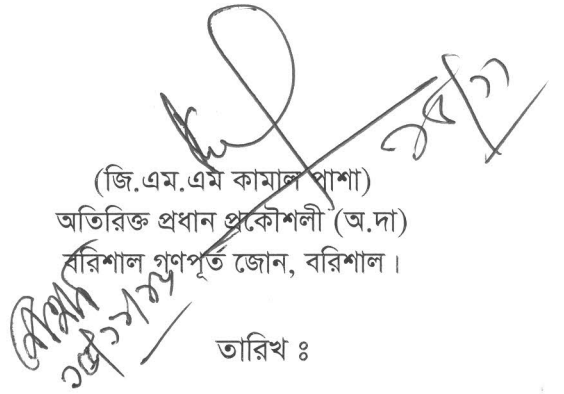 ১৫/১১
(জি.এম.এম কামাল পাশা)
অতিরিক্ত প্রধান প্রকৌশলী (অ.দা)
বরিশাল গণপূর্ত জোন, বরিশাল।
তারিখ ঃ